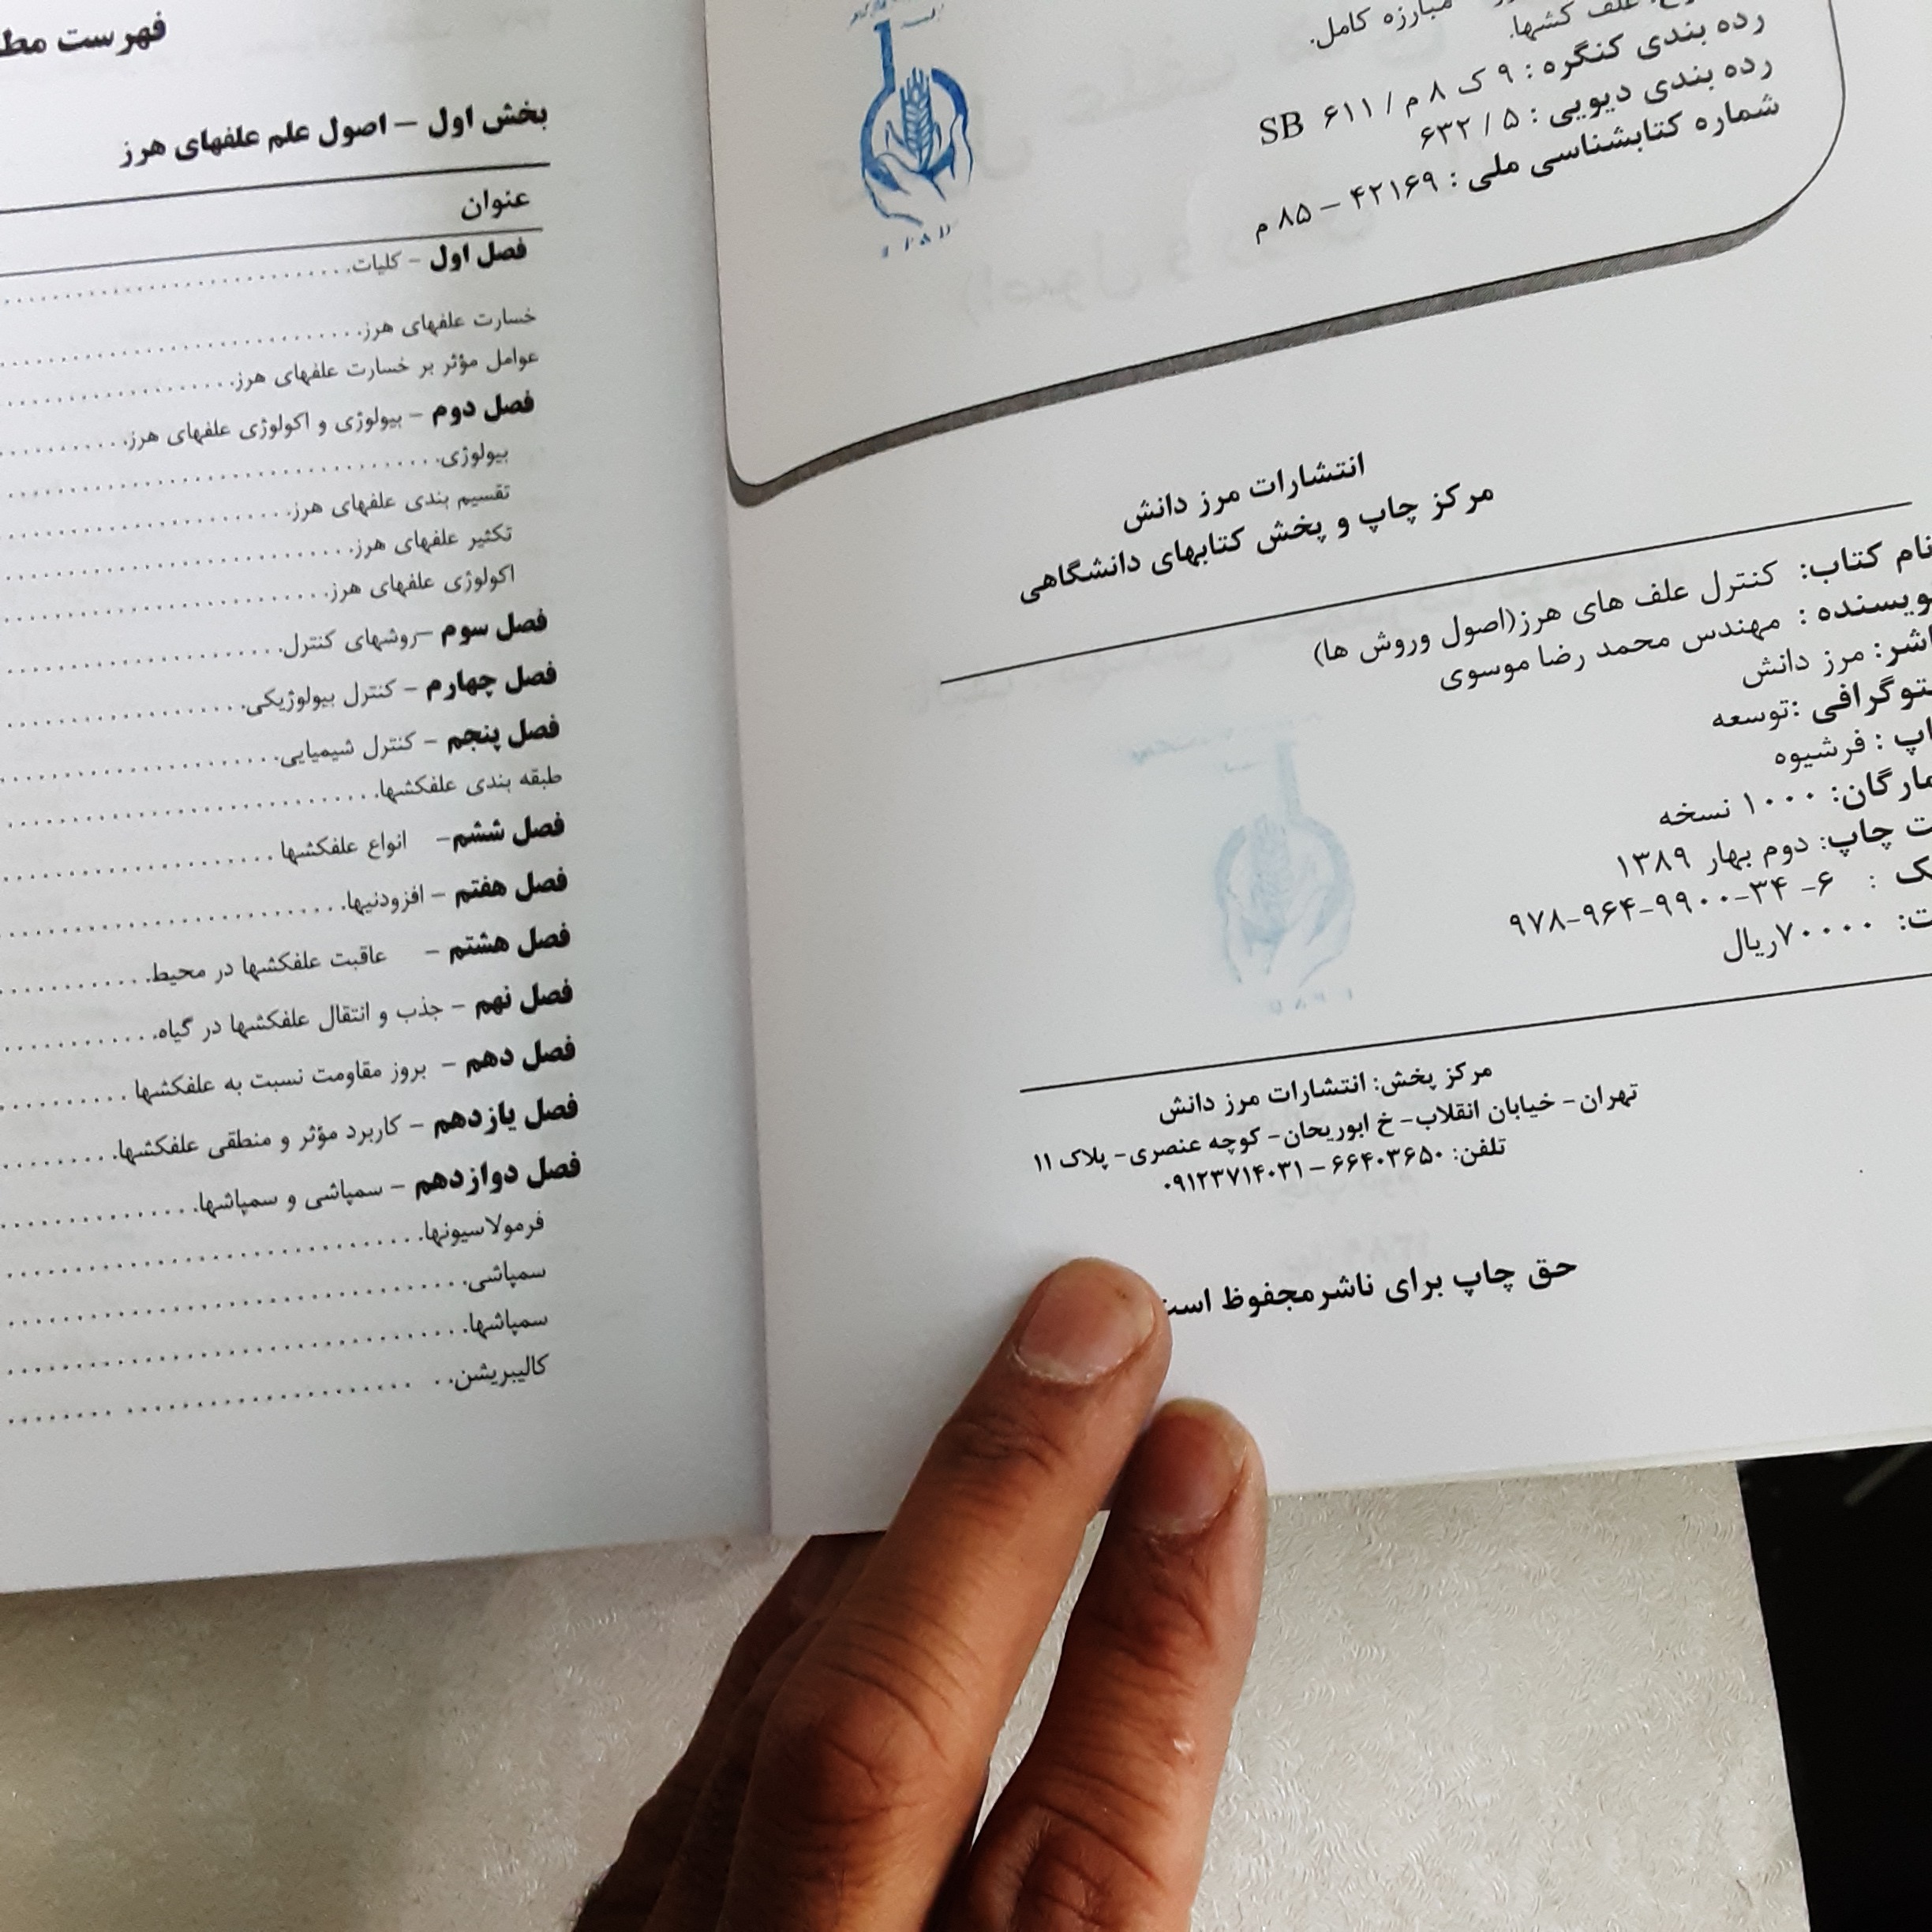 علف کشها.
مبارزه کامل.
رده بندی کنگره : ۹ ک ۸ م / ۶۱۱ SB
رده بندی دیویی : ۵ / ۶۳۲
شماره کتابشناسی ملی : ۴۲۱۶۹ – ۸۵ م
انتشارات مرز دانش
مرکز چاپ و پخش کتابهای دانشگاهی
نام کتاب: کنترل علف های هرز(اصول وروش ها)
ویسنده : مهندس محمد رضا موسوی
اشر: مرز دانش
توگرافی :توسعه
اپ : فرشیوه
مارگان: ۱۰۰۰ نسخه
ت چاپ: دوم بهار ۱۳۸۹
ک : ۶- ۳۴-۹۹۰۰-۹۶۴-۹۷۸
ت: ۷۰۰۰۰ریال
مرکز پخش: انتشارات مرز دانش
تهران- خیابان انقلاب- خ ابوریحان- کوچه عنصری- پلاک ۱۱
تلفن: ۶۶۴۰۳۶۵۰ – ۰۹۱۲۳۷۱۴۰۳۱
حق چاپ برای ناشرمجفوظ است
فهرست مط
بخش اول – اصول علم علفهای هرز
عنوان
فصل اول – کلیات
خسارت علفهای هرز
عوامل مؤثر بر خسارت علفهای هرز
فصل دوم – بیولوژی و اکولوژی علفهای هرز
بیولوژی
تقسیم بندی علفهای هرز
تکثیر علفهای هرز
اکولوژی علفهای هرز
فصل سوم –روشهای کنترل
فصل چهارم – کنترل بیولوژیکی
فصل پنجم – کنترل شیمیایی
طبقه بندی علفکشها
فصل ششم– انواع علفکشها
فصل هفتم – افزودنیها
فصل هشتم – عاقبت علفکشها در محیط
فصل نهم – جذب و انتقال علفکشها در گیاه
فصل دهم – بروز مقاومت نسبت به علفکشها
فصل یازدهم – کاربرد مؤثر و منطقی علفکشها
فصل دوازدهم – سمپاشی و سمپاشها
فرمولاسیونها
سمپاشی
سمپاشها
کالیبریشن